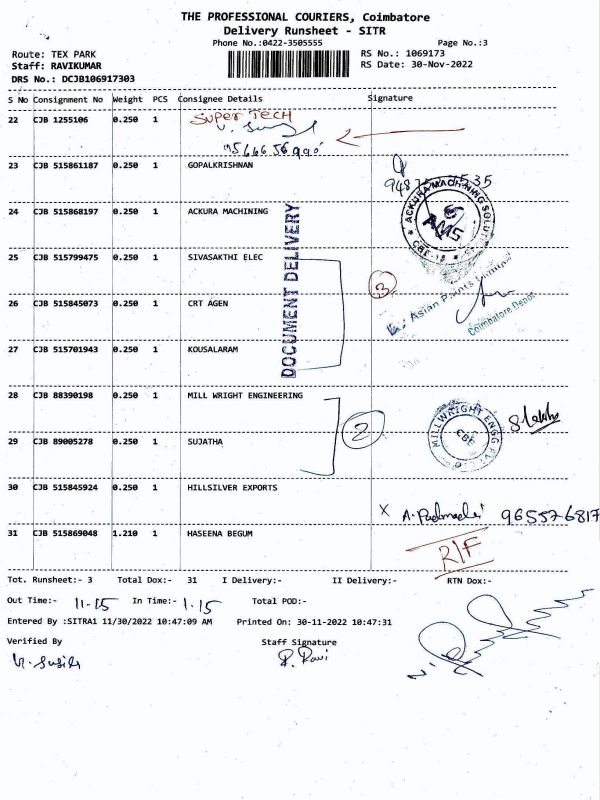 THE PROFESSIONAL COURIERS, Coimbatore
Delivery Runsheet - SITR
Phone No.:0422-3505555 Page No.:3
Route: TEX PARK RS No.: 1069173
Staff: RAVIKUMAR RS Date: 30-Nov-2022
DRS No.: DCJB106917303
S No Consignment No Weight PCS Consignee Details Signature
22 CJB 1255106 0.250 1 SUPER TECH
23 CJB 515861187 0.250 1 GOPALKRISHNAN
24 CJB 515868197 0.250 1 ACKURA MACHINING
ACKURA MACHINING SOLUTI
AMS
DOCUMENT DELIVERY
25 CJB 515799475 0.250 1 SIVASAKTHI ELEC
3
Asian Paints Limited
Coimbatore Depot
26 CJB 515845073 0.250 1 CRT AGEN
27 CJB 515701943 0.250 1 KOUSALARAM
28 CJB 88390198 0.250 1 MILL WRIGHT ENGINEERING
2
MILLWRIGHT ENGG
CBE
29 CJB 89005278 0.250 1 SUJATHA
30 CJB 515845924 0.250 1 HILLSILVER EXPORTS
X 965576817
31 CJB 515869048 1.210 1 HASEENA BEGUM
R/F
Tot. Runsheet:- 3 Total Dox:- 31 I Delivery:- II Delivery:- RTN Dox:-
Out Time:- 11-15 In Time:- 1.15 Total POD:-
Entered By :SITRA1 11/30/2022 10:47:09 AM Printed On: 30-11-2022 10:47:31
Verified By Staff Signature
R. Ravi